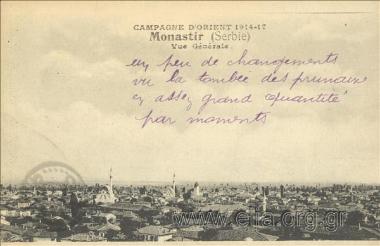 CAMPAGNE D'ORIENT 1914-17
Monastir (Serbie)
Vue Générale.
un peu de changements
vu la tombée des pruneaux
en assez grand quantité
par moments
www.elia.org.gr